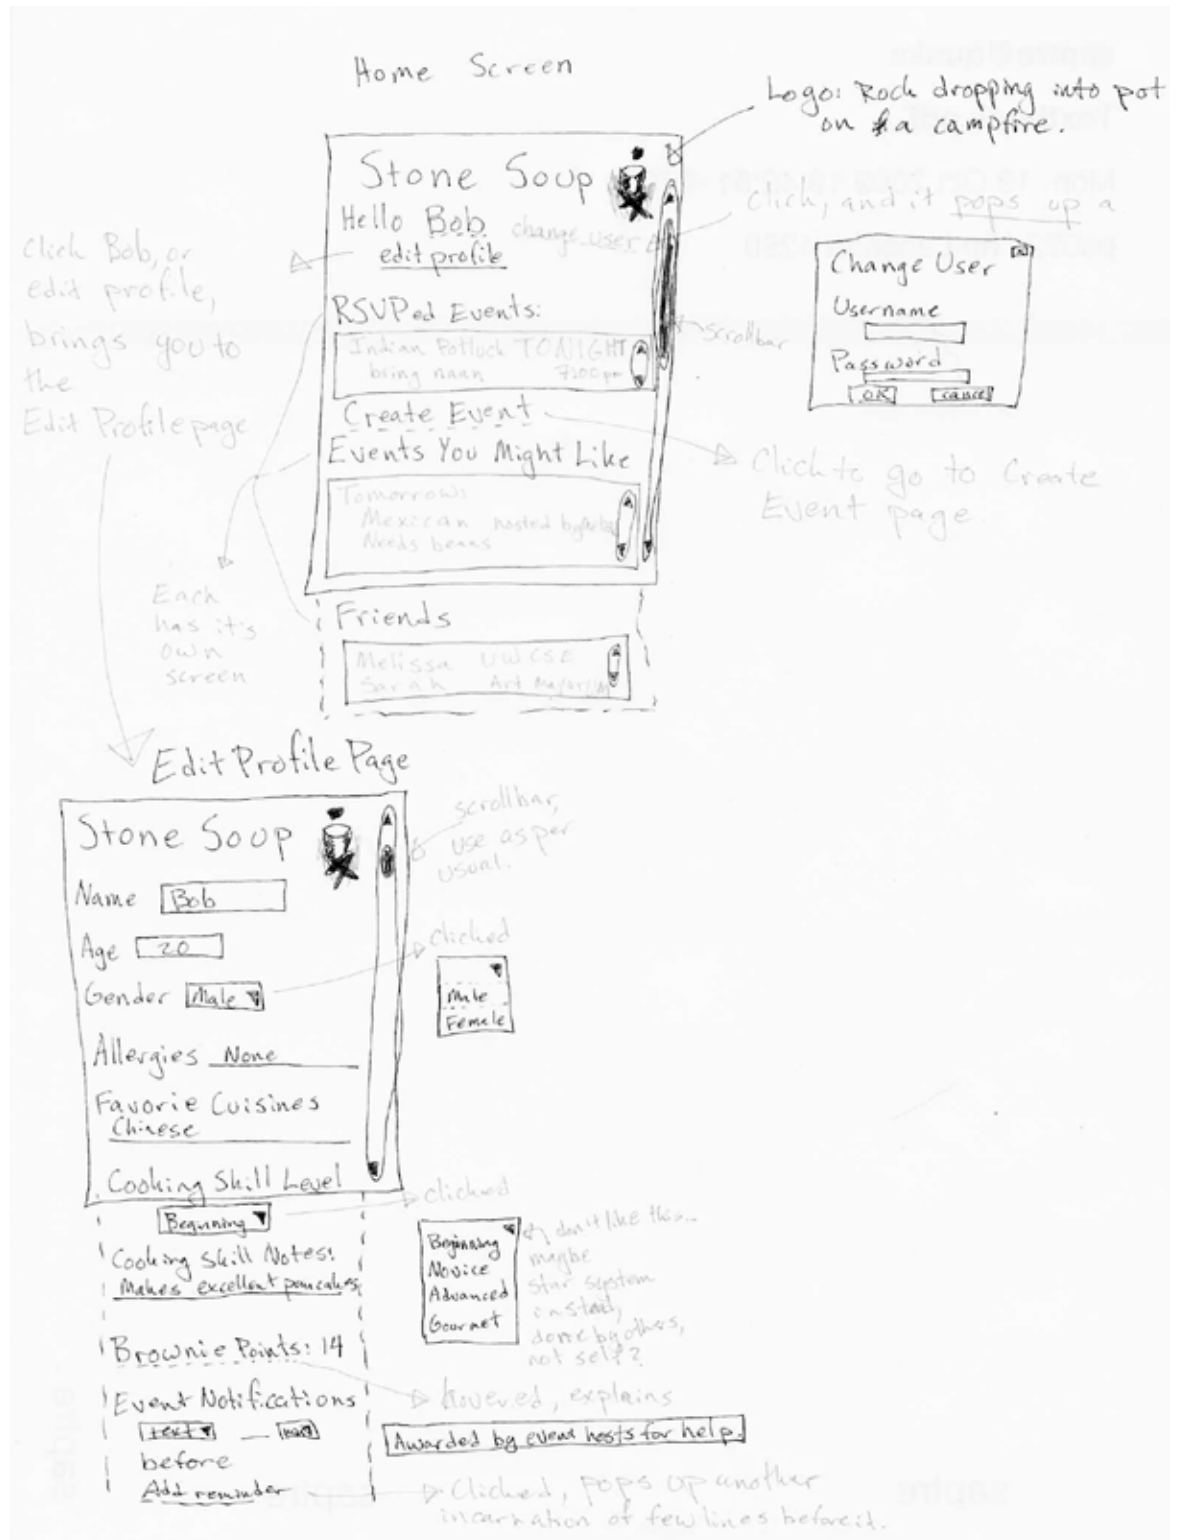 Home Screen
Logo: Rock dropping into pot
on a campfire.
Stone Soup
Hello Bob
change user
edit profile
Click, and it pops up a
Change User
Username
Password
OK
Cancel
click Bob, or
edit profile,
brings you to
the
Edit Profile page
RSVPed Events:
scrollbar
Indian Potluck TONIGHT
bring naan 7:00 pm
Create Event
Click to go to Create
Event page.
Events You Might Like
Tomorrow:
Mexican hosted by
Needs beans
Each
has it's
own
screen
Friends
Melissa UW CSE
Sarah Art Major
Edit Profile Page
Stone Soup
scrollbar,
use as per
usual.
Name Bob
Age 20
Gender Male
clicked
Male
Female
Allergies None
Favorie Cuisines
Chinese
Cooking Skill Level
Beginning
clicked
Beginning
Novice
Advanced
Gourmet
don't like this...
maybe
star system
instead,
done by others,
not self?
Cooking Skill Notes:
Makes excellent pancakes
Brownie Points: 14
hovered, explains
Awarded by event hosts for help.
Event Notifications
text
before
Add reminder
Clicked, pops up another
incarnation of few lines before it.